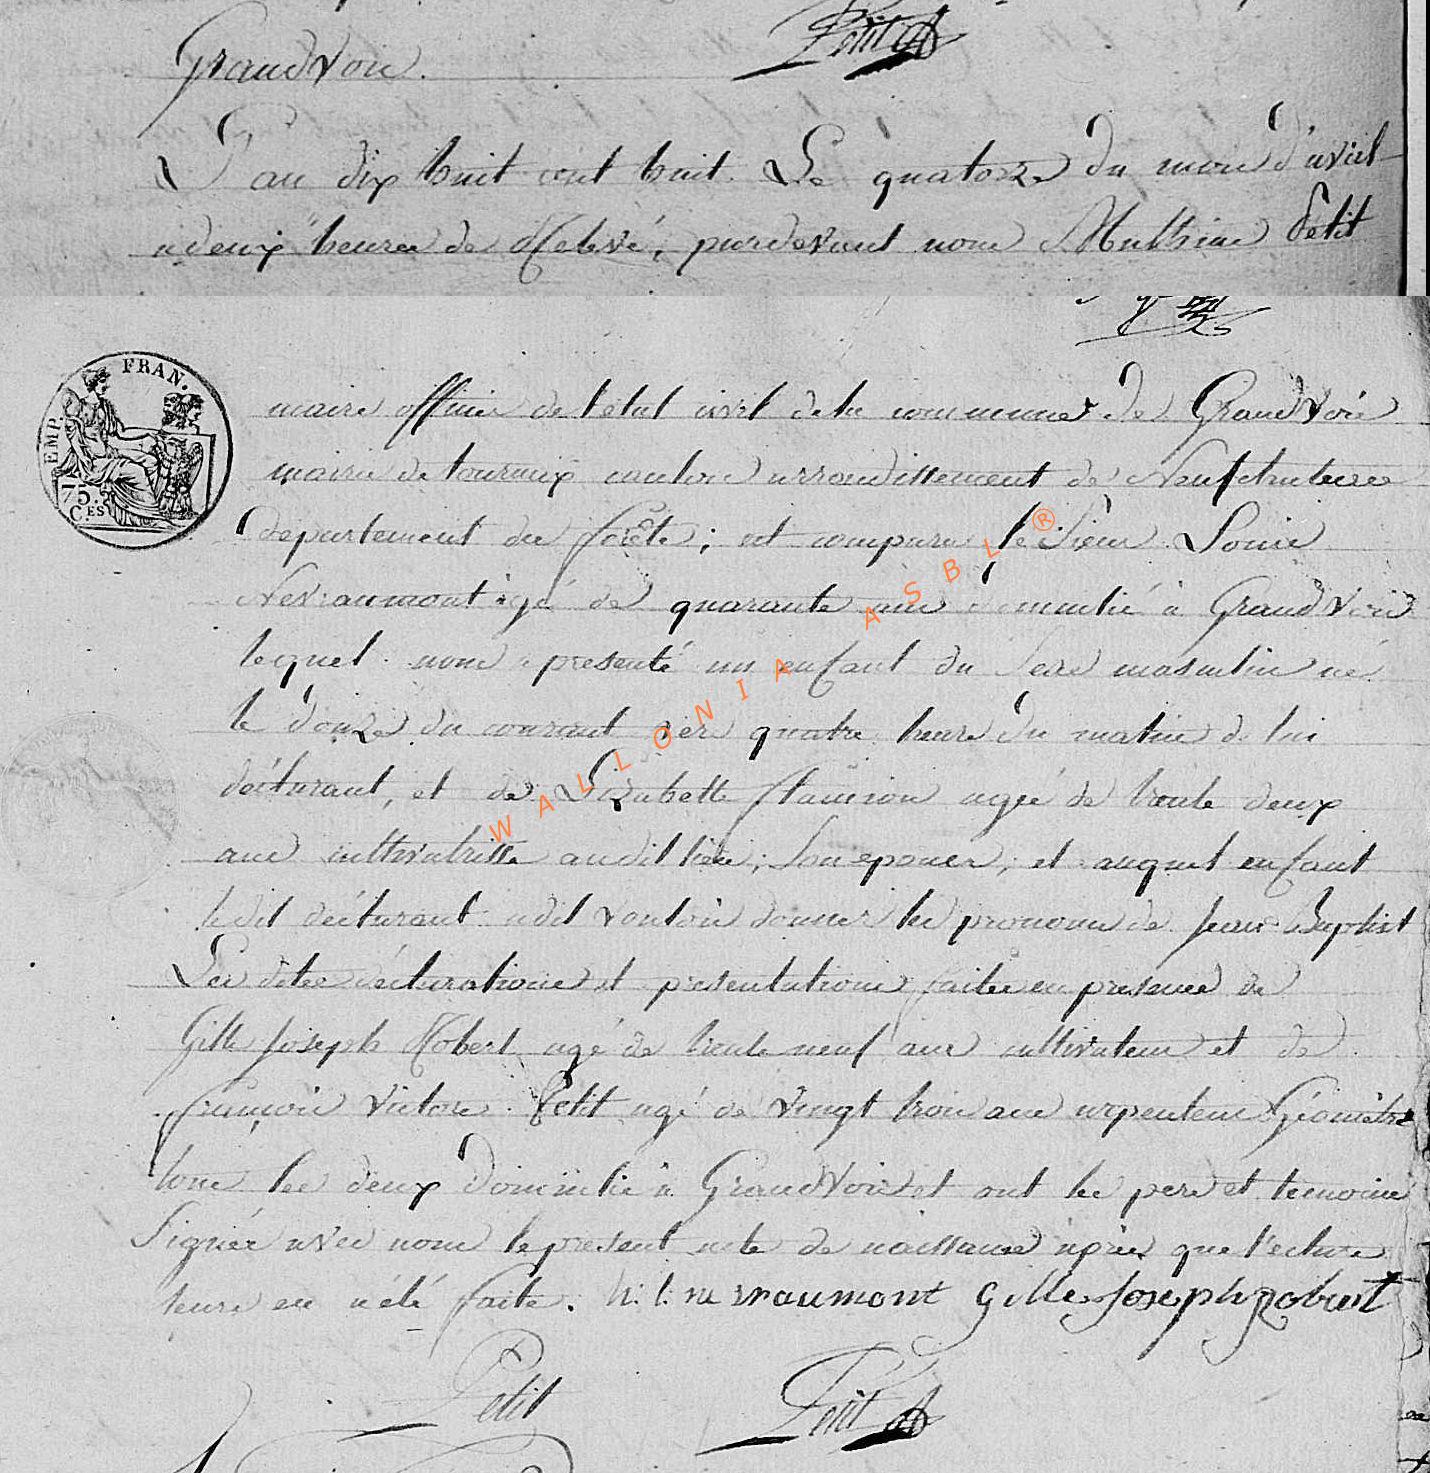 Petit
GrandVoir.
L'an dix huit cent huit. Le quatorze du mois d'avril
a deux heures de Relevé, pardevant nous Mathieu Petit
EMP. FRAN.
75.
C.ES
maire officier de l'etat civil de la commune de GrandVoir
mairie de tournay canton arrondissement de Neufchateau
département des forêts; est comparu le Sieur Louis
Nevraumont agé de quarante ans domicilié à GrandVoir
lequel nous a presenté un enfant du sexe masculin né
le douze du courant vers quatre heure du matin de lui
déclarant, et de Lizabette flamion agée de trente deux
ans cultivatrisse audit lieu; Son epouse, et auquel enfant
ledit déclarant a dit vouloir donner les prenoms de Jean Baptist
Les dites déclarations et presentations faites en presence de
Gille Joseph Robert agé de trente neuf ans cultivateur et de
françois Victore Petit agé de Vingt trois ans arpenteur Géomètre
tous les deux Domicilié à GrandVoir et ont les pere et temoins
Signée avec nous le present acte de naissance après que l'ecture
leure en a été faite. N: l: ne vraumont Gille Joseph Robert
Petit Petit
WALLONIA ASBL ®